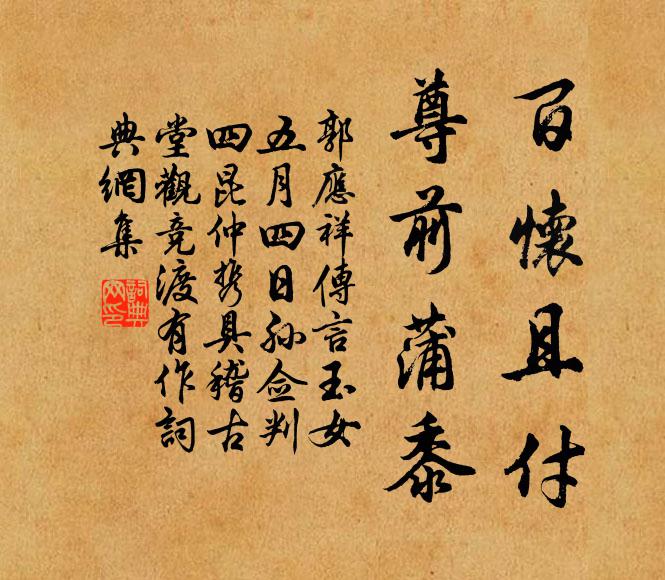 百懷且付
尊前蒲黍
郭應祥傳言玉女
五月四日孙佥判
四昆仲携具稽古
堂觀竞渡有作詞
典網集
詞典網印